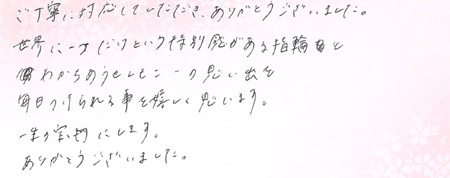 ご丁寧に対応していただき、ありがとうございました。
世界に一つだけという特別感がある指輪
一つの思い出を
毎日つけられる事を嬉しく思います。
一生の宝物にします。
ありがとうございました。